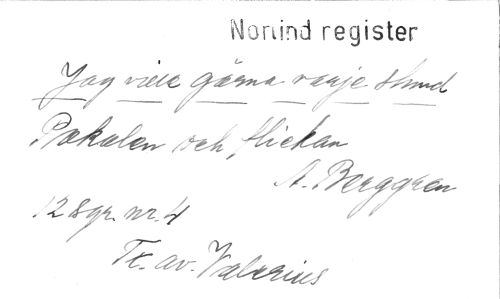 Norlind register
Jag ville gärna varje stund
Pokalen och flickan
A. Berggren
12 sgr. nr. 4
Tx. av. Valerius